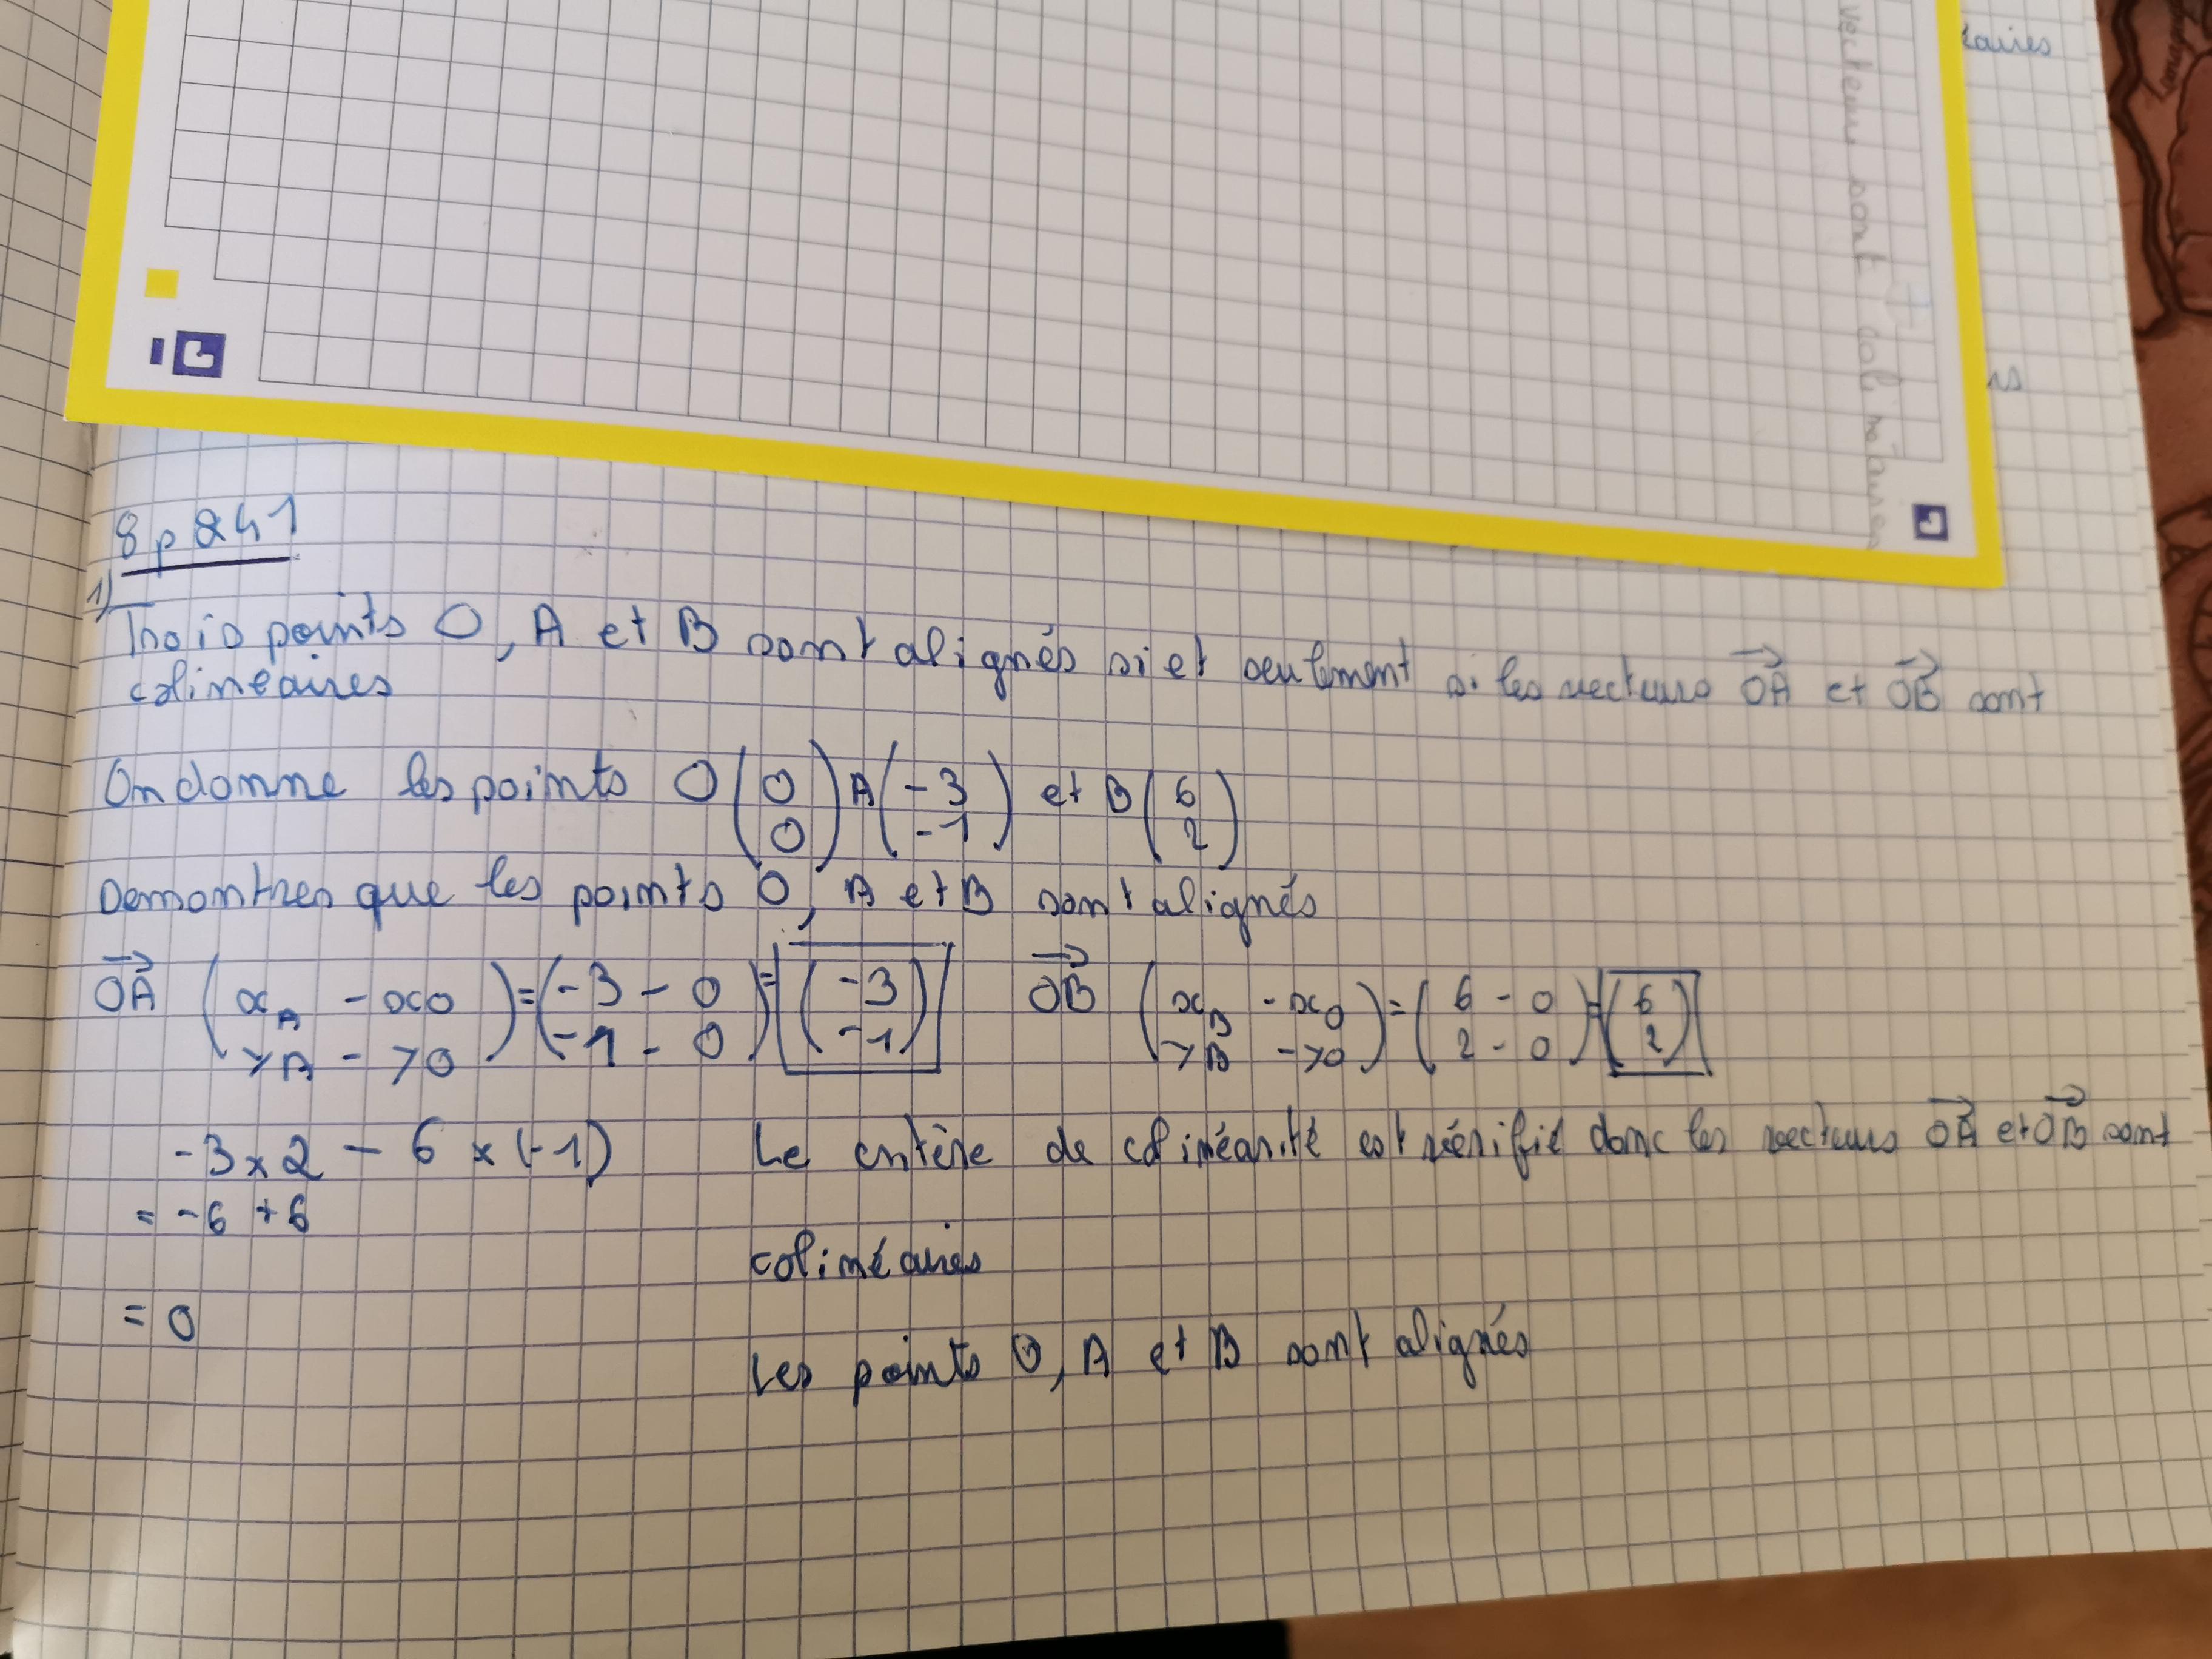 vecteurs sont colinéaires
8 p 241
1)
Trois points O, A et B sont alignés si et seulement si les vecteurs OA et OB sont
colinéaires
On donne les points O (0 0) A (-3 -1) et B (6 2)
Demontrer que les points O, A et B sont alignés
OA (xA - xO yA - yO) = (-3 - 0 -1 - 0) = (-3 -1) OB (xB - xO yB - yO) = (6 - 0 2 - 0) = (6 2)
-3 x 2 - 6 x (-1) Le critère de colinéarité est vérifié donc les vecteurs OA et OB sont
= -6 + 6
colinéaires
= 0
Les points O, A et B sont alignés